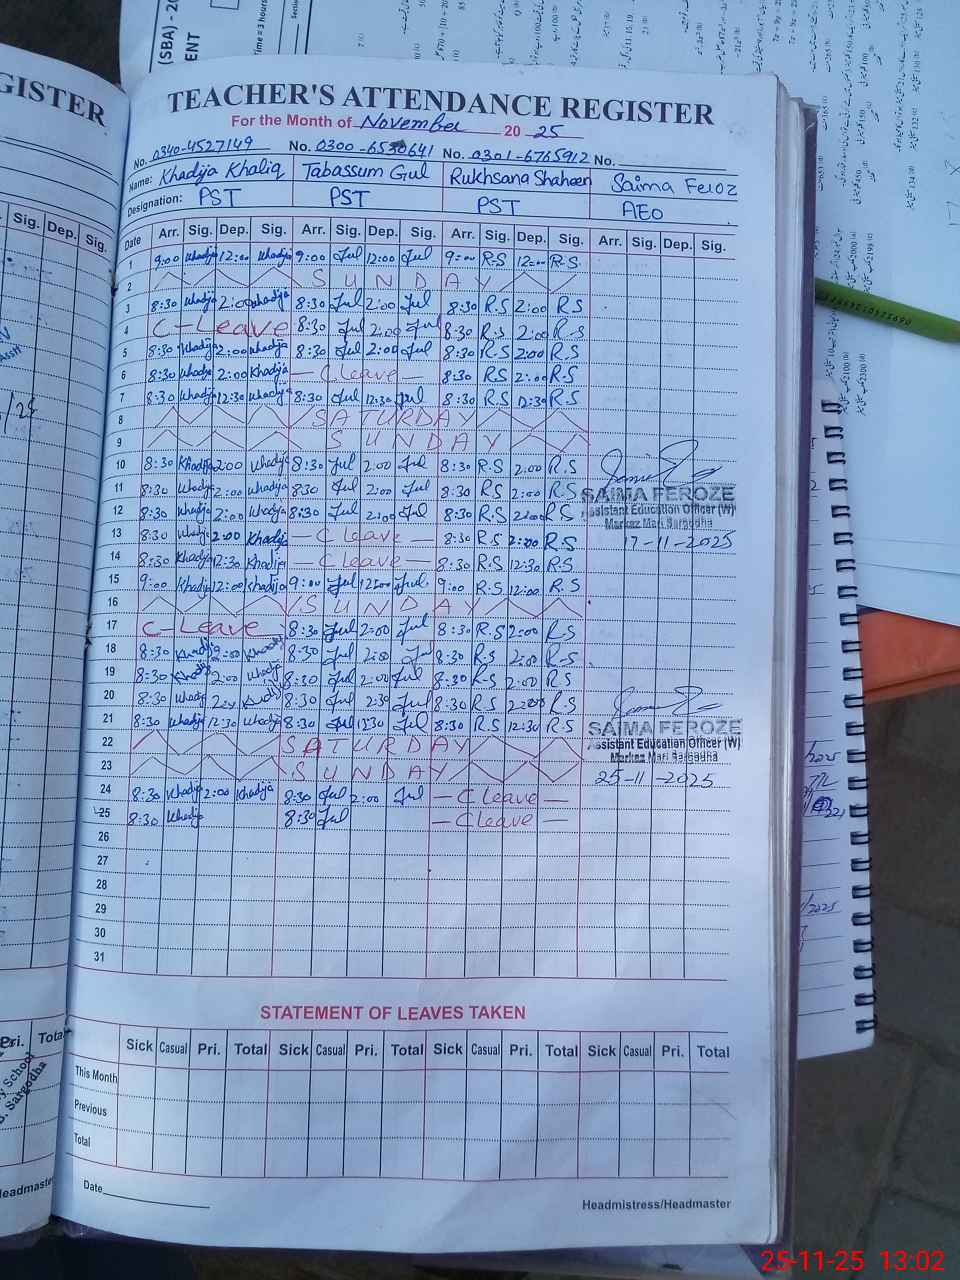 (SBA) - 20
ENT
Time = 3 hours
GISTER
TEACHER'S ATTENDANCE REGISTER
For the Month of November 2025
No. 0340-4527149 No. 0300-6530641 No. 0301-6765912 No.
Name: Khadija Khaliq Tabassum Gul Rukhsana Shaheen Saima Feroz
Designation: PST PST PST AEO
Sig. Dep. Sig.
Date Arr. Sig. Dep. Sig. Arr. Sig. Dep. Sig. Arr. Sig. Dep. Sig. Arr. Sig. Dep. Sig.
1 9:00 Khadija 12:00 Khadija 9:00 Gul 12:00 Gul 9:00 R.S 12:00 R.S
2 SUNDAY
3 8:30 Khadija 2:00 Khadija 8:30 Gul 2:00 Gul 8:30 R.S 2:00 R.S
4 C-Leave 8:30 Gul 2:00 Gul 8:30 R.S 2:00 R.S
5 8:30 Khadija 2:00 Khadija 8:30 Gul 2:00 Gul 8:30 R.S 2:00 R.S
6 8:30 Khadija 2:00 Khadija — C Leave — 8:30 R.S 2:00 R.S
7 8:30 Khadija 12:30 Khadija 8:30 Gul 12:30 Gul 8:30 R.S 12:30 R.S
8 SATURDAY
9 SUNDAY
10 8:30 Khadija 2:00 Khadija 8:30 Gul 2:00 Gul 8:30 R.S 2:00 R.S
11 8:30 Khadija 2:00 Khadija 8:30 Gul 2:00 Gul 8:30 R.S 2:00 R.S
SAIMA FEROZE
12 8:30 Khadija 2:00 Khadija 8:30 Gul 2:00 Gul 8:30 R.S 2:00 R.S
Assistant Education Officer (W)
Markaz Mari Sargodha
13 8:30 Khadija 2:00 Khadija — C Leave — 8:30 R.S 2:00 R.S
17-11-2025
14 8:30 Khadija 12:30 Khadija — C Leave — 8:30 R.S 12:30 R.S
15 9:00 Khadija 12:00 Khadija 9:00 Gul 12:00 Gul 9:00 R.S 12:00 R.S
16 SUNDAY
17 C-Leave 8:30 Gul 2:00 Gul 8:30 R.S 2:00 R.S
18 8:30 Khadija 2:00 Khadija 8:30 Gul 2:00 Gul 8:30 R.S 2:00 R.S
19 8:30 Khadija 2:00 Khadija 8:30 Gul 2:00 Gul 8:30 R.S 2:00 R.S
20 8:30 Khadija Khadija 8:30 Gul 2:30 Gul 8:30 R.S R.S
21 8:30 Khadija 12:30 Khadija 8:30 Gul Gul 8:30 R.S 12:30 R.S
SAIMA FEROZE
Assistant Education Officer (W)
Markaz Mari Sargodha
22 SATURDAY
23 SUNDAY
25-11-2025
24 8:30 Khadija 2:00 Khadija 8:30 Gul 2:00 Gul — C Leave —
25 8:30 Khadija 8:30 Gul — C Leave —
26
27
28
29
30
31
STATEMENT OF LEAVES TAKEN
Pri. Total
Sick Casual Pri. Total Sick Casual Pri. Total Sick Casual Pri. Total Sick Casual Pri. Total
This Month
Previous
Total
School
Sargodha
Date
Headmistress/Headmaster
eadmaster
25-11-25 13:02